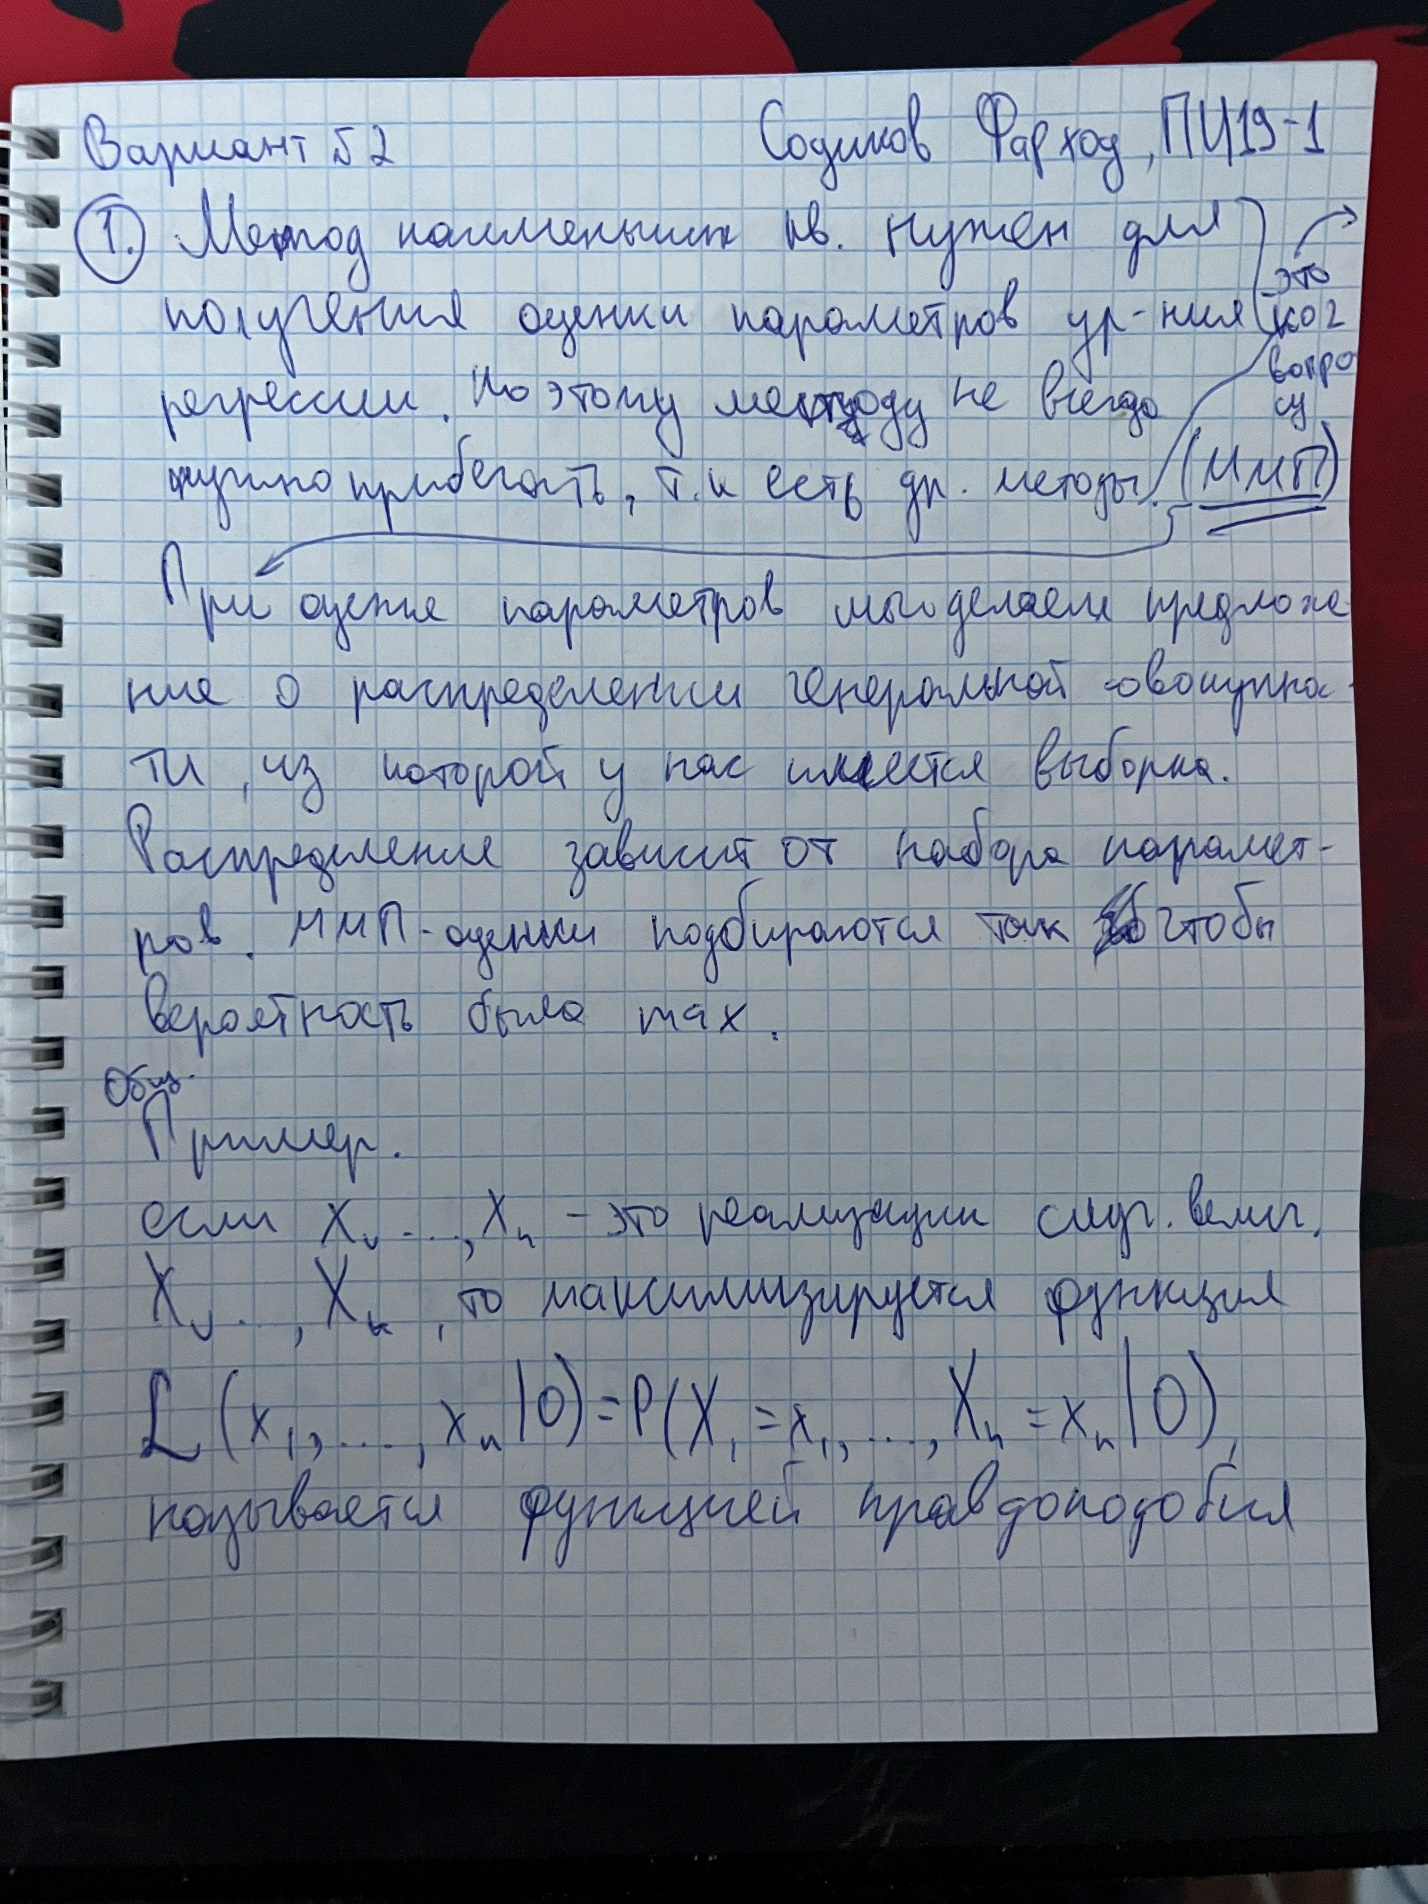 Вариант №2 Содиков Фарход, ПИ19-1
1. Метод наименьших кв. нужен для
получения оценки параметров ур-ния
регрессии. Но этому методу не всегда
нужно прибегать, т.к есть др. методы. (ММП)
это
ко 2
вопро
су
При оценке параметров мы делаем предложе
ние о распределении генеральной совокупнос-
ти, из которой у нас имеется выборка.
Распределение зависит от набора парамет-
ров. ММП-оценки подбираются так чтобы
вероятность была max.
Общ.
Пример.
если x₁, ..., xₙ - это реализации случ. велич.
X₁, ..., Xₙ, то максимизируется функция
L (x₁, ..., xₙ | O) = P(X₁ = x₁, ..., Xₙ = xₙ | O),
называется функцией правдоподобия